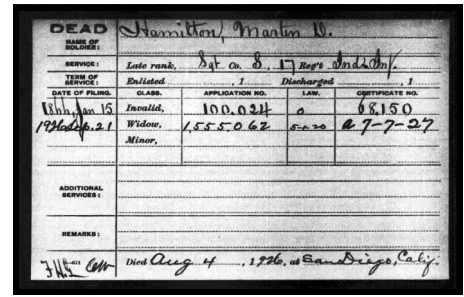 DEAD Hamilton, Martin D.
NAME OF SOLDIER:
SERVICE: Late rank, Sgt. Co. 17 Reg't Ind. Inf.
TERM OF SERVICE: Enlisted , 1 Discharged , 1
DATE OF FILING. CLASS. APPLICATION NO. LAW. CERTIFICATE NO.
Jan. 15 Invalid, 100,024 0 68,150
1926 Sep. 21 Widow, 1,555,062 5-1-20 a 7-7-27
Minor,
ADDITIONAL SERVICES:
REMARKS:
Died Aug 4, 1926, at San Diego, Calif.